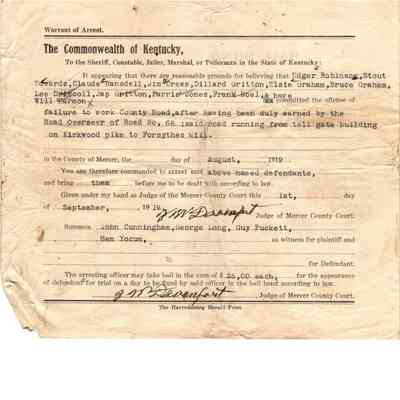 Warrant of Arrest.
The Commonwealth of Kentucky,
To the Sheriff, Constable, Jailer, Marshal, or Policemen in the State of Kentucky:
It appearing that there are reasonable grounds for believing that Edgar Robinson, Stout
Edwards, Claude Ransdell, Jim Crews, Dillard Gritton, Elzie Graham, Bruce Graham,
Lee Driscoll, Jap Gritton, Farris Jones, Frank Noel, & have
Will Harmon committed the offense of
failure to work County Road, after having been duly warned by the
Road Overseer of Road No. 68 ; said road running from toll gate building
on Kirkwood pike to Forsythes Mill.
in the County of Mercer, the day of August, 1919.
You are therefore commanded to arrest said above named defendants,
and bring them before me to be dealt with according to law.
Given under my hand as Judge of the Mercer County Court this 1st, day
of September, 1919. Judge of Mercer County Court.
Summon John Cunningham, George Long, Guy Puckett,
Ben Yocum, as witness for plaintiff and
for Defendant.
The arresting officer may take bail in the sum of $ 25.00 each, for the appearance
of defendant for trial on a day to be fixed by said officer in the bail bond according to law.
, Judge of Mercer County Court.
The Harrodsburg Herald Print